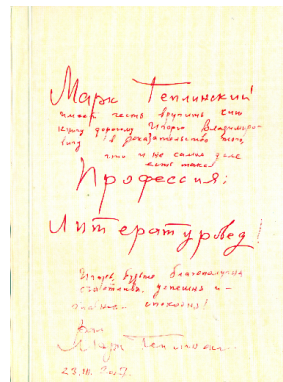 Марк Теплинский
имеет честь вручить сию
книгу дорогому Игорю Владимиро-
вичу в доказательство того,
что и на самом деле
есть такая
Профессия:
Литературовед!
Игорь, будьте благополучны
счастливы, успешны и –
спокойны!
Ваш
Марк Теплинский
23.III.2007.